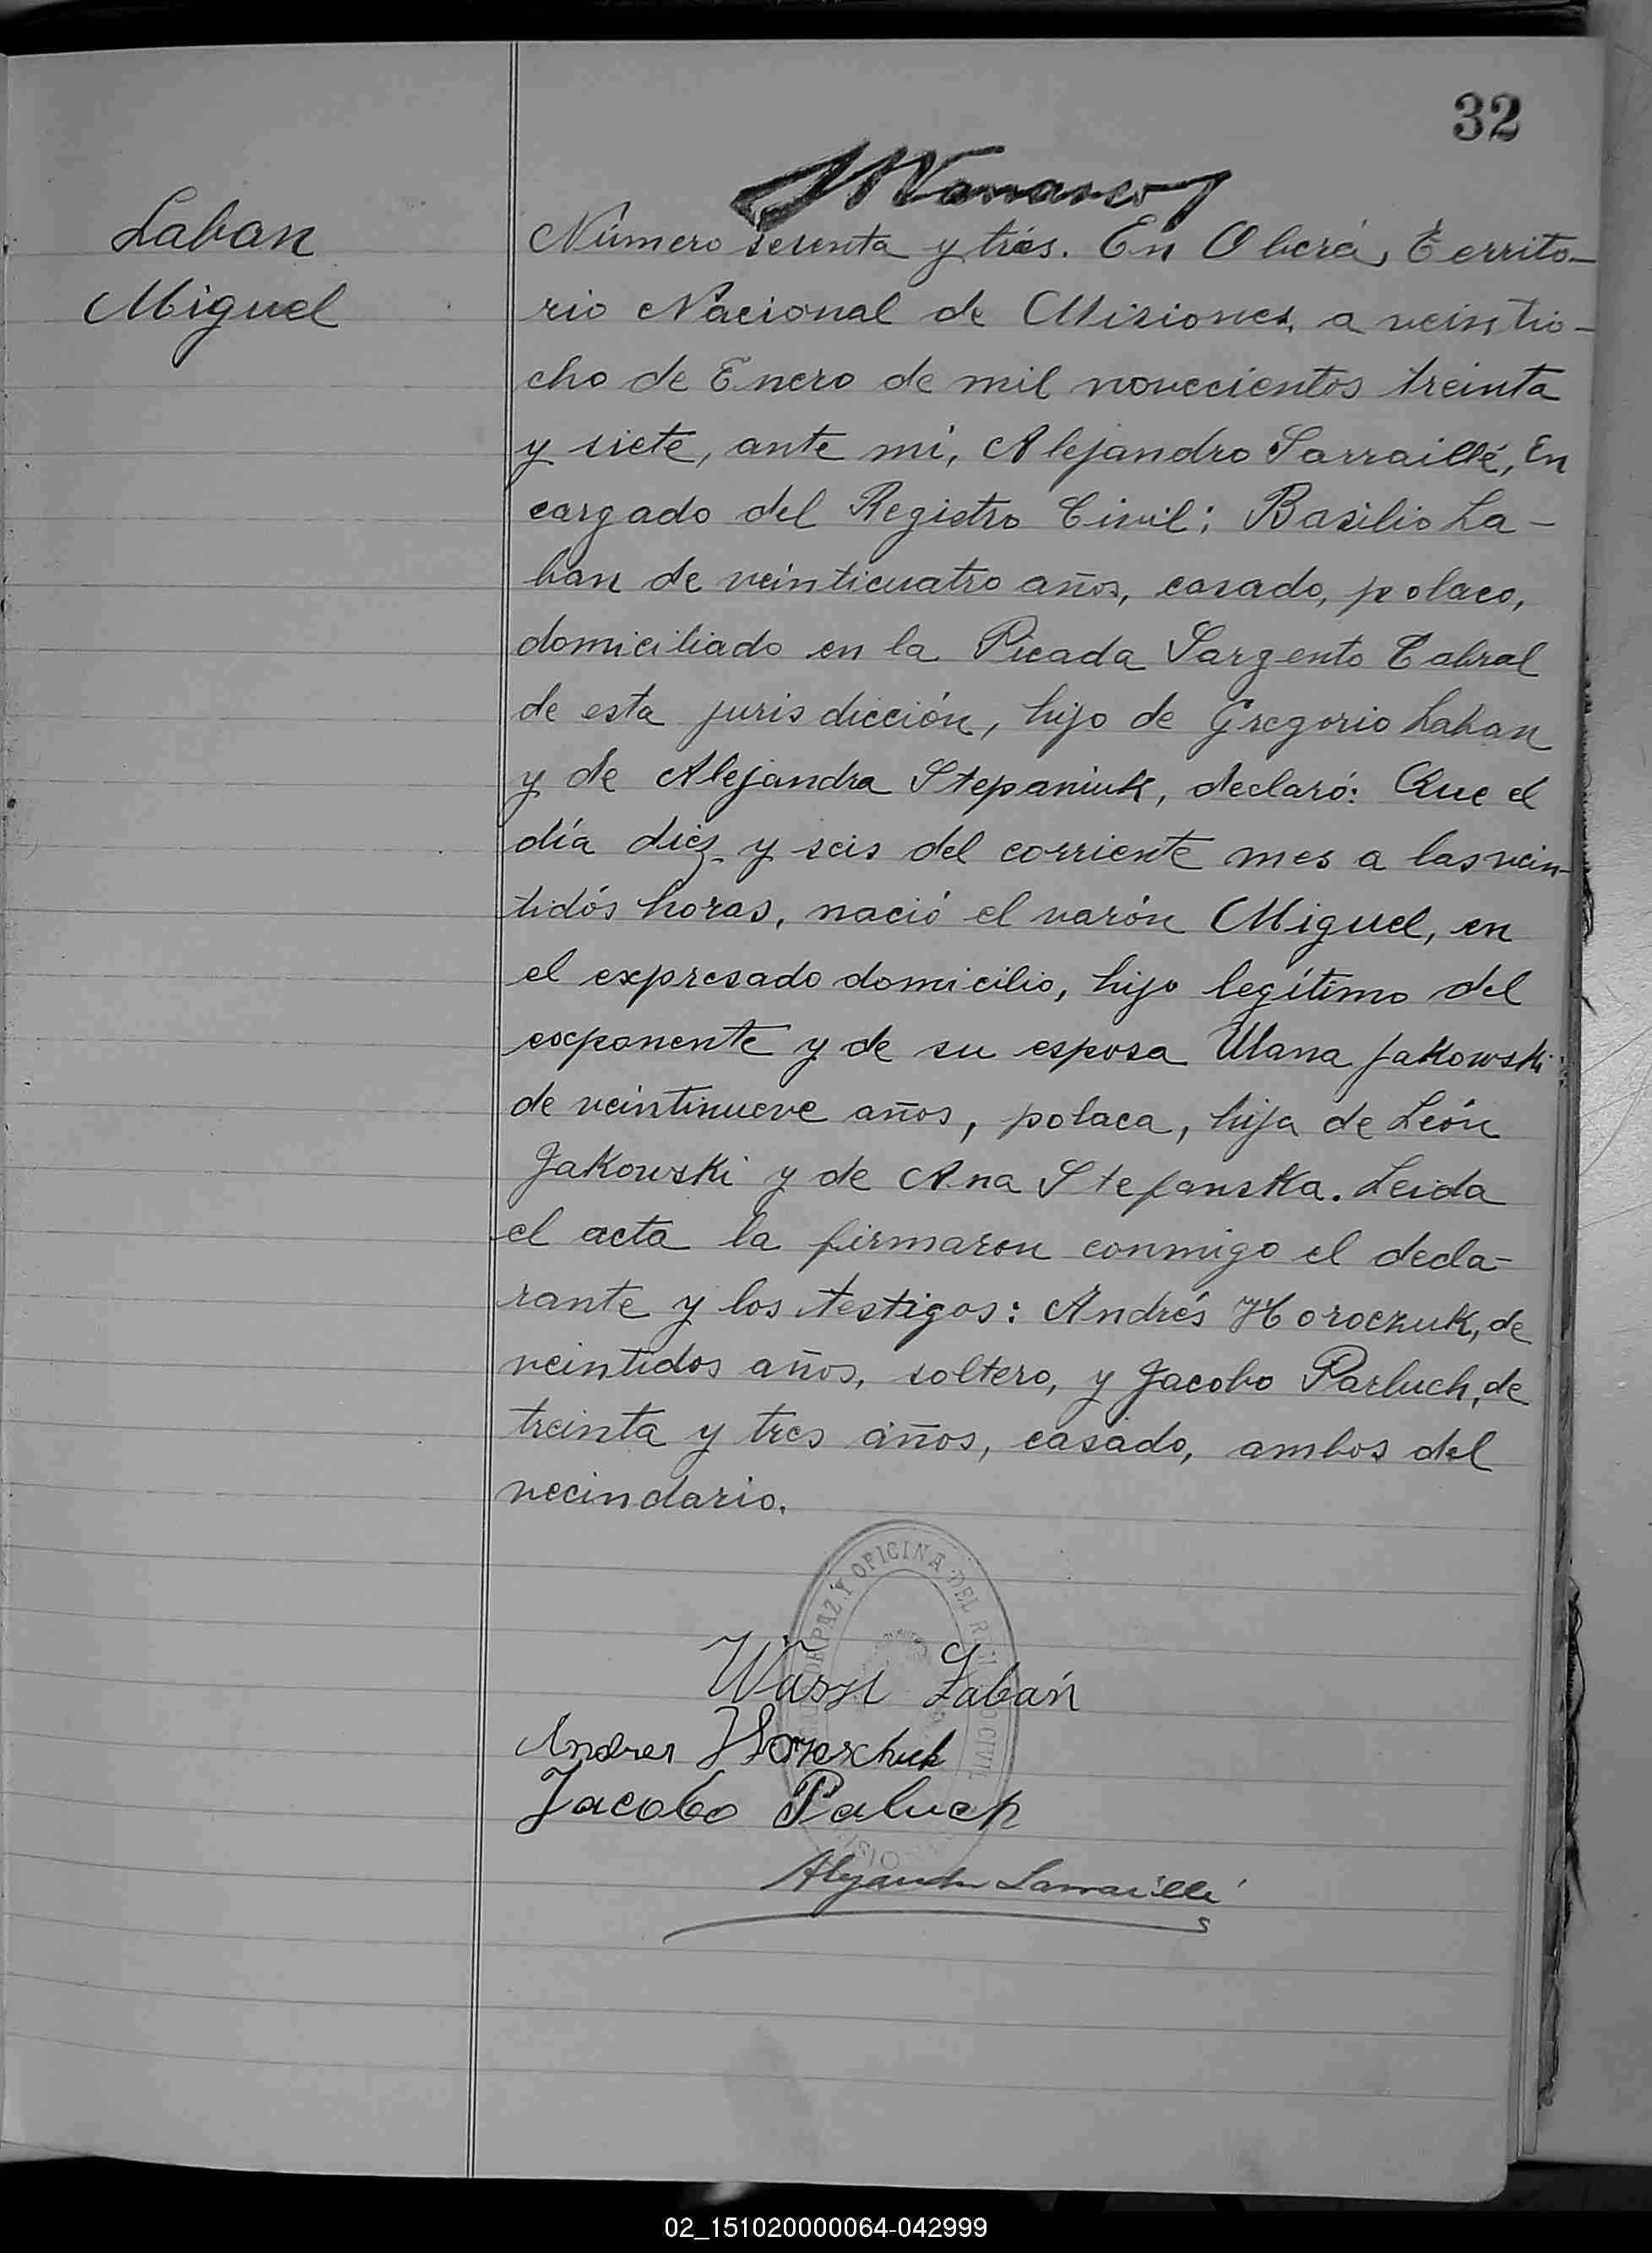 32
Laban
Miguel
Número sesenta y trés. En Oberá, Territo-
rio Nacional de Misiones, a veintio-
cho de Enero de mil novecientos treinta
y siete, ante mi, Alejandro Sarraillé, En
cargado del Registro Civil; Basilio La-
ban de veinticuatro años, casado, polaco,
domiciliado en la Picada Sargento Cabral
de esta jurisdicción, hijo de Gregorio Laban
y de Alejandra Stepaniuk, declaró: Que el
día diez y seis del corriente mes a las vein-
tidós horas, nació el varón Miguel, en
el expresado domicilio, hijo legítimo del
exponente y de su esposa Ulana Jakowski
de veintinueve años, polaca, hija de León
Jakowski y de Ana Stefanska. Leida
el acta la firmaron conmigo el decla-
rante y los testigos: Andrés Horoczuk, de
veintidos años, soltero, y Jacobo Parluch, de
treinta y tres años, casado, ambos del
vecindario.
DE PAZ Y OFICINA DEL REG CIVIL
Wasyl Labań
Andres Horoschuk
Jacobo Paluch
Alejandro Sarraillé
02_151020000064-042999